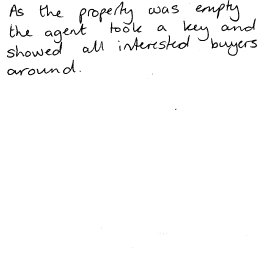 As the property was empty
the agent took a key and
showed all interested buyers
around.